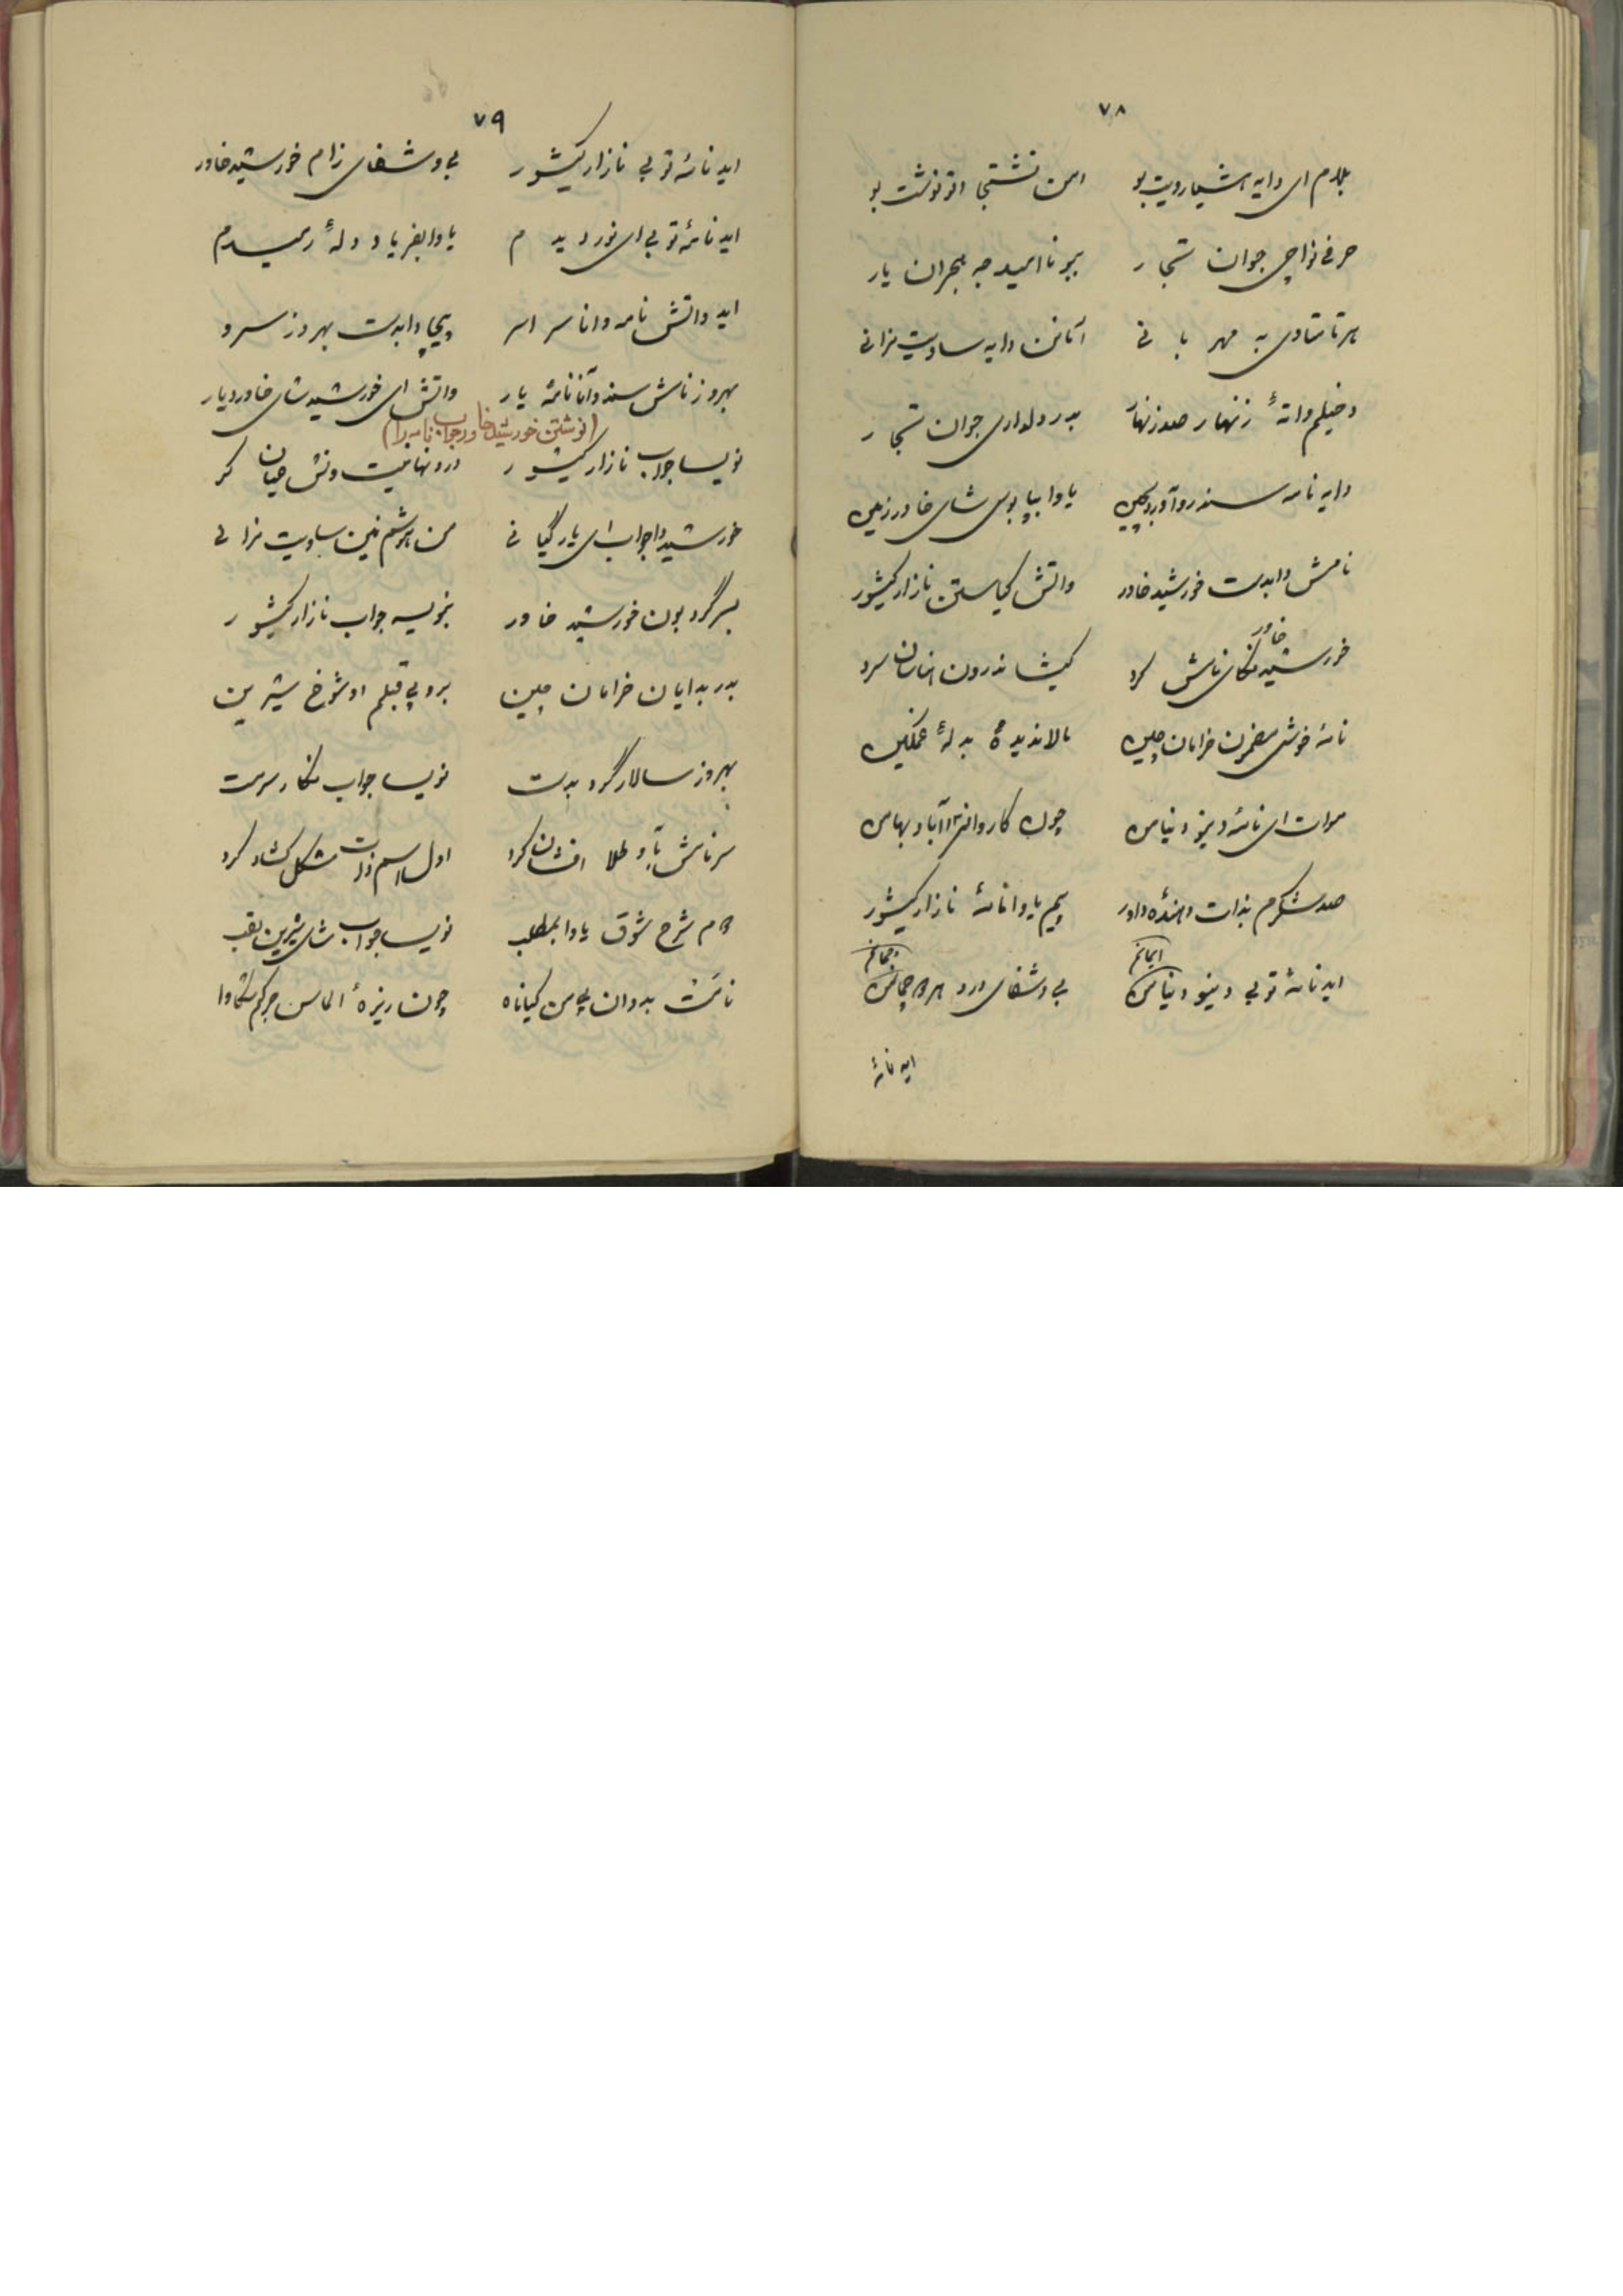 ۷۸
بلارم ای دایه هشیارویت بو امن نشتجا اثر نوشت بو
حرفی نواچی جوان تجار ببو ناامید جه هجران یار
هرتا تاوی به مهربانی آنا من دایه ساویت مزانی
دخیلم واتهٔ زنهار صد زنهار بدر دلداری جوان تجار
دایه نامه سند رو آورد بچین یاوا بپابوس شای خاور زمین
نامش دا بدست خورشید خاور واتش کیاستن نازار کیشور
خورشید خاور نگای نامش کرد کیشا ندرون هناسان سرد
نامهٔ خوش مضمون خرامان چین مالا ندیده و بدلهٔ غمگین
موات ای نامهٔ دینو دنیامن چون کاروانسرا آباد بهامن
صد شکرم بذات دهندهٔ داور پیم یاوا نامهٔ نازار کیشور
اید نامهٔ توبی دینو دنیامن ایمانم بی وشفای درد هر و جمامن
اید نامهٔ
۷۹
اید نامهٔ توبی نازار کیشور بی وشفای زام خورشید خاور
اید نامهٔ توبی ای نور دیدم یاوا بفریاد دلهٔ رمیدم
اید واتش نامه وانا سراسر پیچا دا بدست بهروز سرو
بهروز نامش سند وانا نامهٔ یار واتش ای خورشید شای خاور دیار
(نوشتن خورشید خاور جواب نامه را)
نویسا جواب نازار کیشور درد نهانیت ونش عیان کر
خورشید وا جواب ای یار گیانی من هوشم نین ساویت مزانی
بسرگرد بون خورشید خاور بنویسه جواب نازار کیشور
بدر بدایان خرامان چین برو پی قبلم او شوخ شیرین
بهروز سالار گرد بدست نویسا جواب نگار سرمست
سرنامش بآو طلا افشان کرد اول اسم ذات مشکل گشاد کرد
و م شرح شوق یاوا بمطلب نویسا جواب شای شیرین لقب
نامت بدوان پی من کیانا چون ریزهٔ الماس جرگم شکاوا